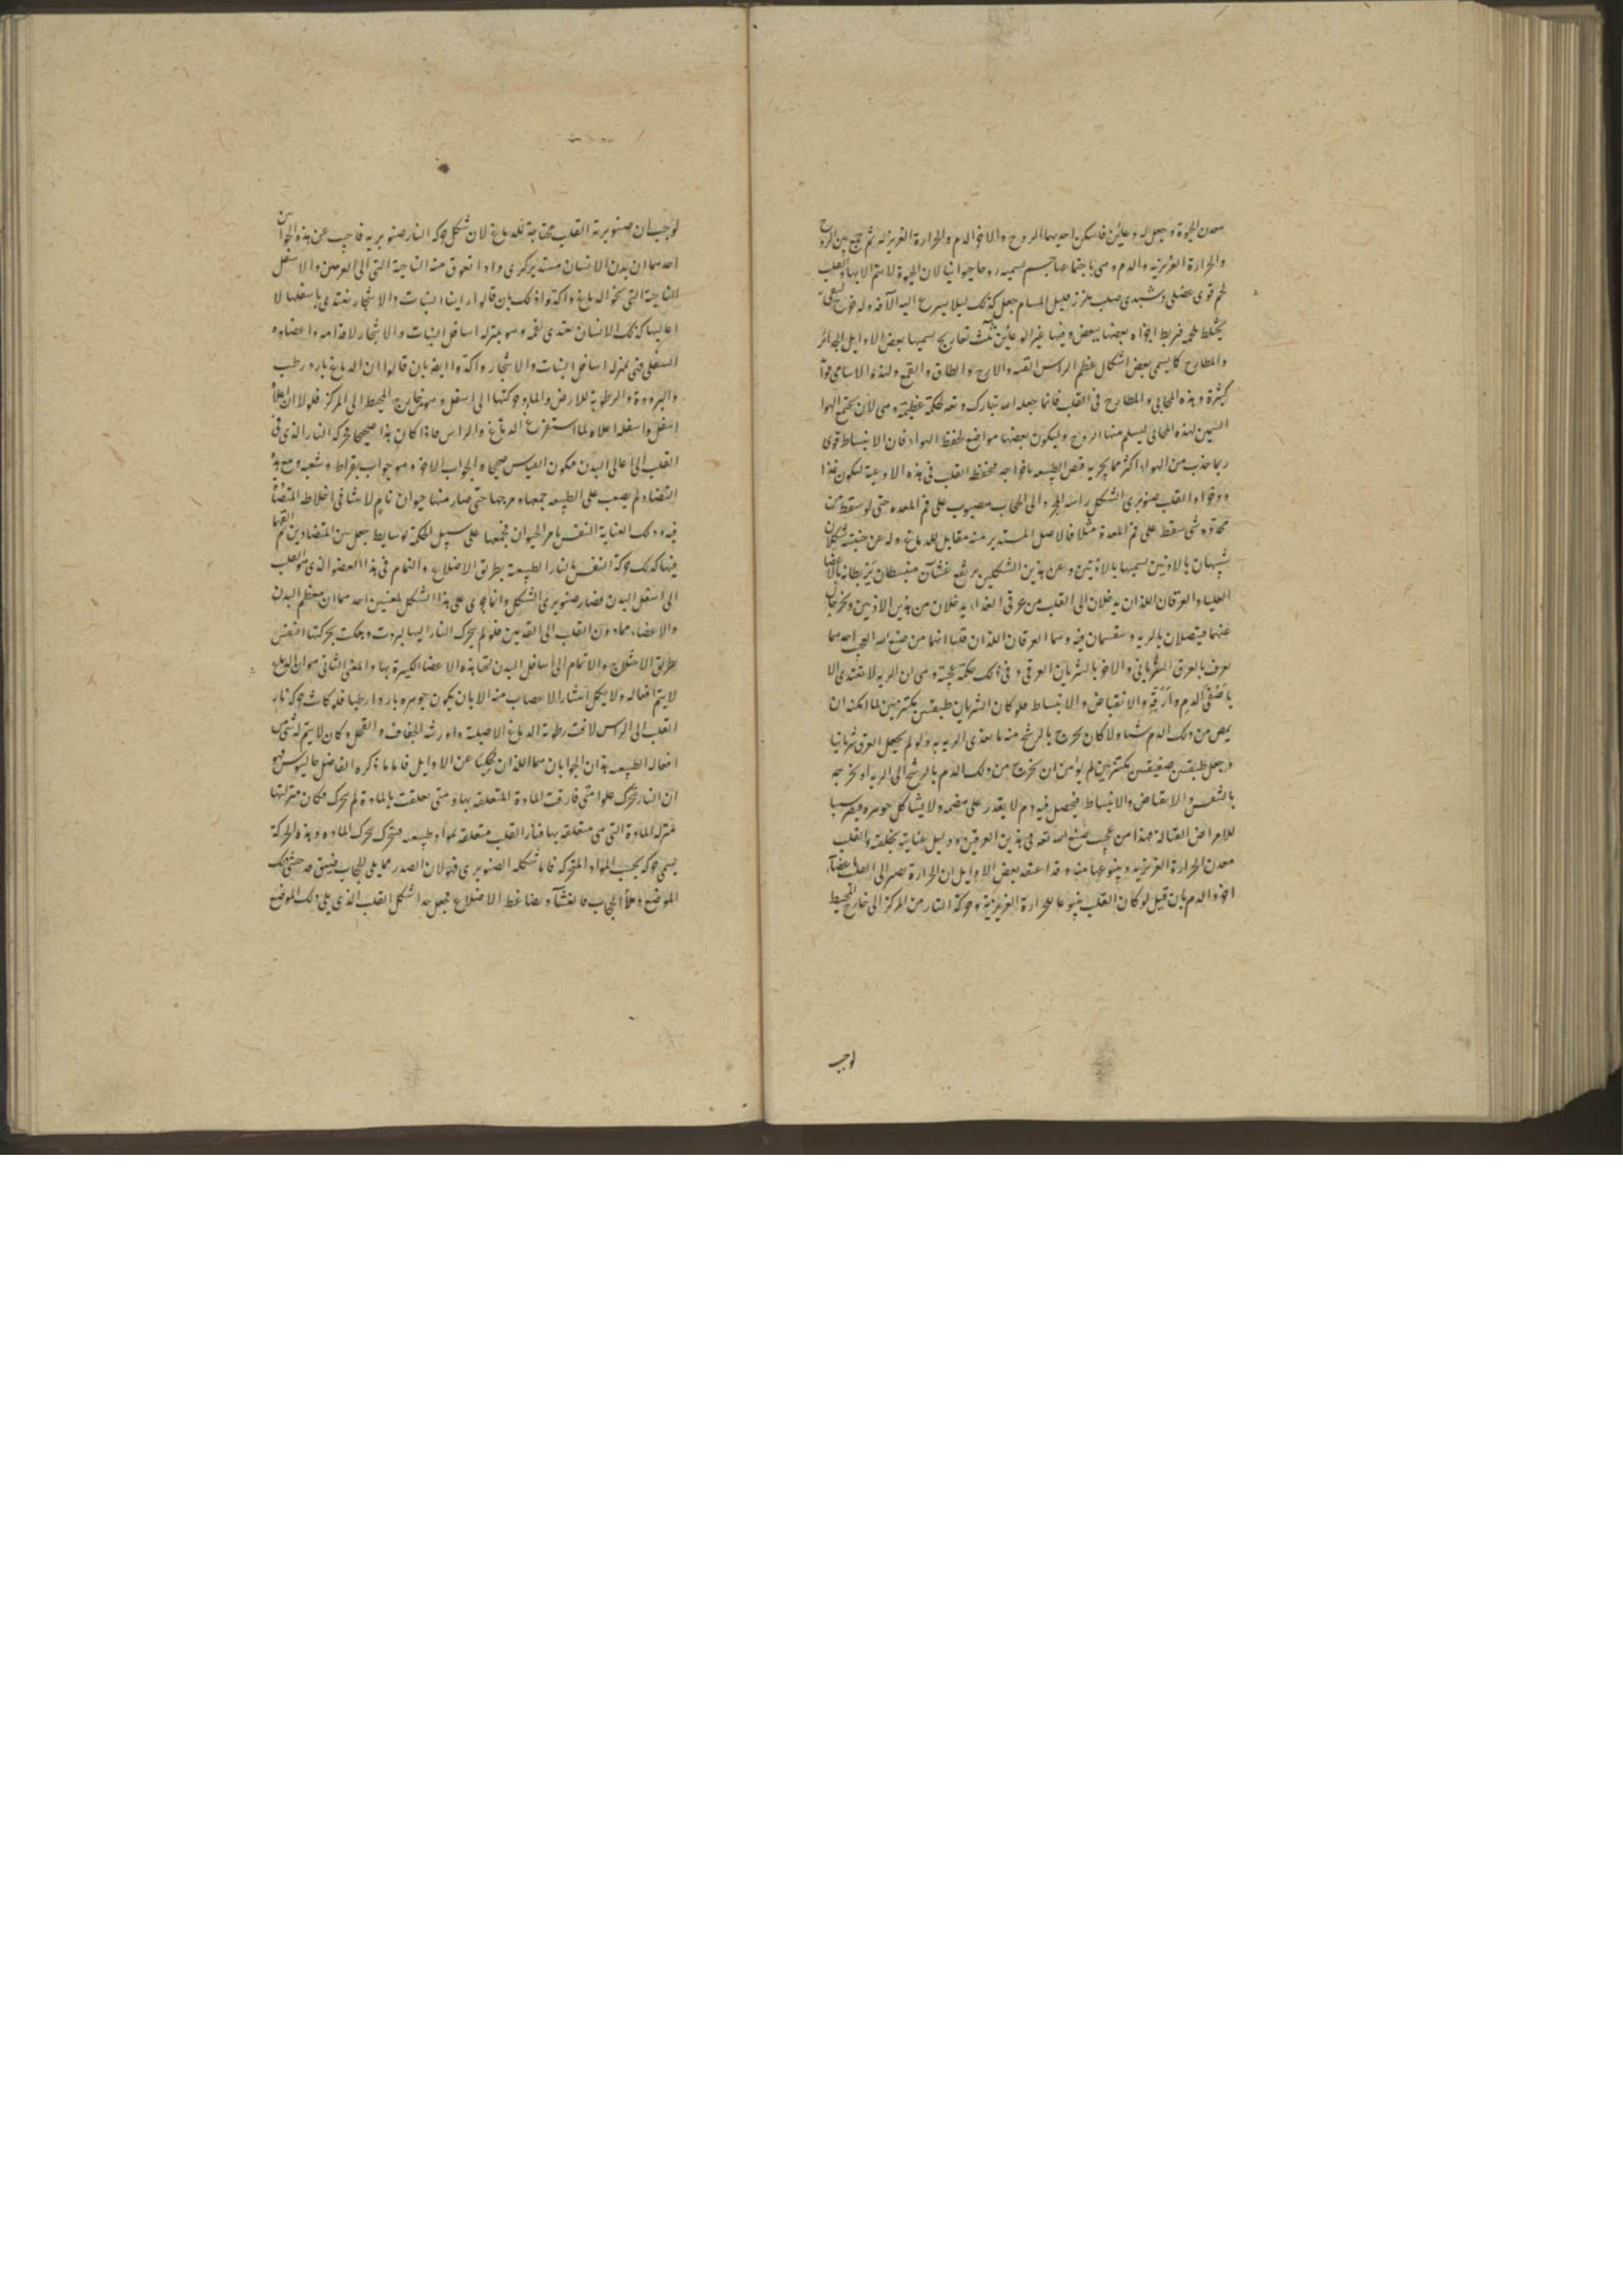 معدن الحيوة وجعل له وعائين فاسكن احديهما الروح والاخر الدم والحرارة الغريزية ثم جمع بين الروح
والحرارة الغريزية والدم وهي باجتماعها جسم يسميه روحا حيوانيا لان الحيوة لا يتم الا بها والقلب
لحم قوى عضلى صلب ملزز قليل المسام جعل كذلك ليلا يسرع اليه الآفة وله
يختلط لحمه فربط اجزاه بعضها ببعض وفيها غير الوعائين ثلث تعاريج يسميها بعض الاوايل الجدائر
والمطارح كما يسمى بعض اشكال عظم الراس القبة والازج والطاق والقمع ولهذه الاسامى
كثيرة وهذه المخابى والمطارح في القلب فانما جعله الله تبارك وتعه لحكمة عظيمة وهي لان يجتمع الهوا
لهذه المخابى ليسلم منها الروح وليكون بعضها مواضع لحفظ الهواء فان الانبساط قوى
ربما جذب من الهواء اكثر مما يجب الطبيعه باخراجه فحفظه القلب في هذه الاوعية ليكون غذا
والقلب صنوبرى الشكل راسه الى الحجاب مصبوب على فم المعده حتى لو سقط من
شى سقط على فم المعدة مثلا فالاصل المستدير منه مقابل للدماغ وله عن جنبيه شكلان
شبيهان بالاذنين يسميها بالاذنين وعن هذين الشكلين يرتفع غشاآن منبسطان يربطانه بالاعضا
العليا والعرقان اللذان يدخلان الى القلب من عرقى الغداء يدخلان من هذين الاذنين ويخرجان
عنهما فيتصلان بالريه وينقسمان فيه وهما العرقان اللذان قلنا انهما من صنع الله العجيب احدهما
يعرف بالعرق الشريانى والاخر بالشريان العرقى وفى ذلك حكمة عجيبة وهي ان الريه لا تغتدى الا
باصفى الدم وارقه والانقباض والانبساط فلو كان الشريان طبقتين مكتنزتين لما امكنه ان
يمص من ذلك الدم شيا ولا كان يخرج بالرشح منه ما يغدى الريه به ولو لم يجعل العرق شريانيا
وجعل طبقتين صفيقتين مكتنزتين لم يؤمن ان يخرج من ذلك الدم بالرشح الى الريه او يخرجه
بالتنفس والانقباض والانبساط فيحصل فيه دم لا يقدر على هضمه ولا يشاكل جوهره فيصير سببا
للامراض القتالة فهذا من عجيب صنع الله تعه فى هذين العرقين ودليل عنايته بخلقته والقلب
معدن الحرارة الغريزيه وينبوعها منه وقد اعتقد بعض الاوايل ان الحرارة تصير الى القلب
والدم بان قيل لو كان القلب ينبوعا للحرارة الغريزية وحركة النار من المركز الى خارج المحيط
لوجب
لوجب ان صنوبرية القلب محتاجة للدماغ لان شكل حركه النار صنوبريه فاجيب عن هذه بجوابين
احدهما ان بدن الانسان مستدير كرى وادا تعوق منه الناحية التى الى العرض والاسفل
الناحية التى نحو الدماغ واكدوا ذلك بان قالوا راينا النبات والاشجار تغتدى باسفلها لا
اعاليها كذلك الانسان يغتدى بفمه وهو بمنزله اسافل النبات والاشجار لاقدامه واعضاوه
السفلى فى بمنزله اسافل النبات والاشجار واكدوا ايضه بان قالوا ان الدماغ بارد رطب
والبرودة والرطوبة للارض والماء وحركتها الى اسفل وهو من خارج المحيط الى المركز فلولا ان اعلاه
اسفل واسفله اعلاه لما استفرغ الدماغ والراس فاذا كان هذا صحيحا فحركه النار الذى فى
القلب الى اعالى البدن فيكون القياس صحيحا والجواب الاخر وهو جواب بقراط وشعب ومع هذه
التضاد لم يصعب على الطبيعه جمعها ومزجها حتى صار منها حيوان تام لا متنافى اخلاطه المتضادة
فيه وذلك لعناية النفس بامر الحيوان فجمعها على سبيل الحكمة بوسايط جعل بين المتضادين
فيها كذلك حركة النفس بالنار الطبيعة بطريق الاصلاح والتمام فى هذا العضو الذى هو القلب
الى اسفل البدن فصار صنوبرى الشكل وانما جرى على هذا الشكل لمعنيين احدهما ان معظم البدن
والاعضاء مما دون القلب الى القدمين فلو لم يحرك النار اليها لبردت وهلكت بحركتها النفس
بطريق الاصلاح والاتمام الى اسافل البدن لبقا هذه الاعضا الكبيرة بها والمعنى الثانى هو ان الدماغ
لا يتم افعاله ولا يكمل انتشار الاعصاب منه الا بان يكون جوهره باردا رطبا فلو كانت حركة نار
القلب الى الراس لافنت رطوبة الدماغ الاصلية واورثه الجفاف والقحل وكان لا يتم له شى من
افعاله الطبيعه هذان الجوابان هما اللذان حكينا عن الاوايل فاما ما ذكره الفاضل جالينوس فهو
ان النار تتحرك علوا متى فارقت المادة المتعلقه بها ومتى تعلقت بالمادة لم تتحرك فكان منزلتها
منزله المادة التى هى متعلقه بها فنار القلب متعلقه بمواد طبيعيه فتتحرك بحرك الماده وهذه الحركة
يسمى حركه بحسب المواد المتحركه فاما شكله الصنوبرى فهو لان الصدر مما يلى الحجاب فيضيق
الموضع بالحجاب فالغشآء وضاغط الاضلاع فجعل هذا شكل القلب الذى يلى ذلك الموضع